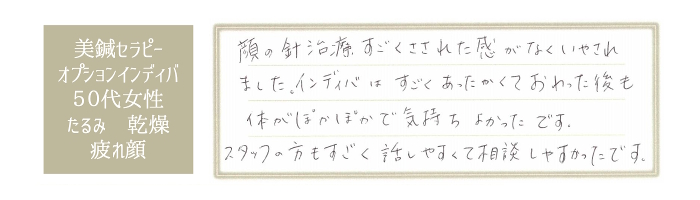 美鍼セラピー
オプションインディバ
５０代女性
たるみ　乾燥
疲れ顔
顔の針治療すごくさされた感がなくいやされ
ました。インディバはすごくあったかくておわった後も
体がぽかぽかで気持ちよかったです。
スタッフの方もすごく話しやすくて相談しやすかったです。